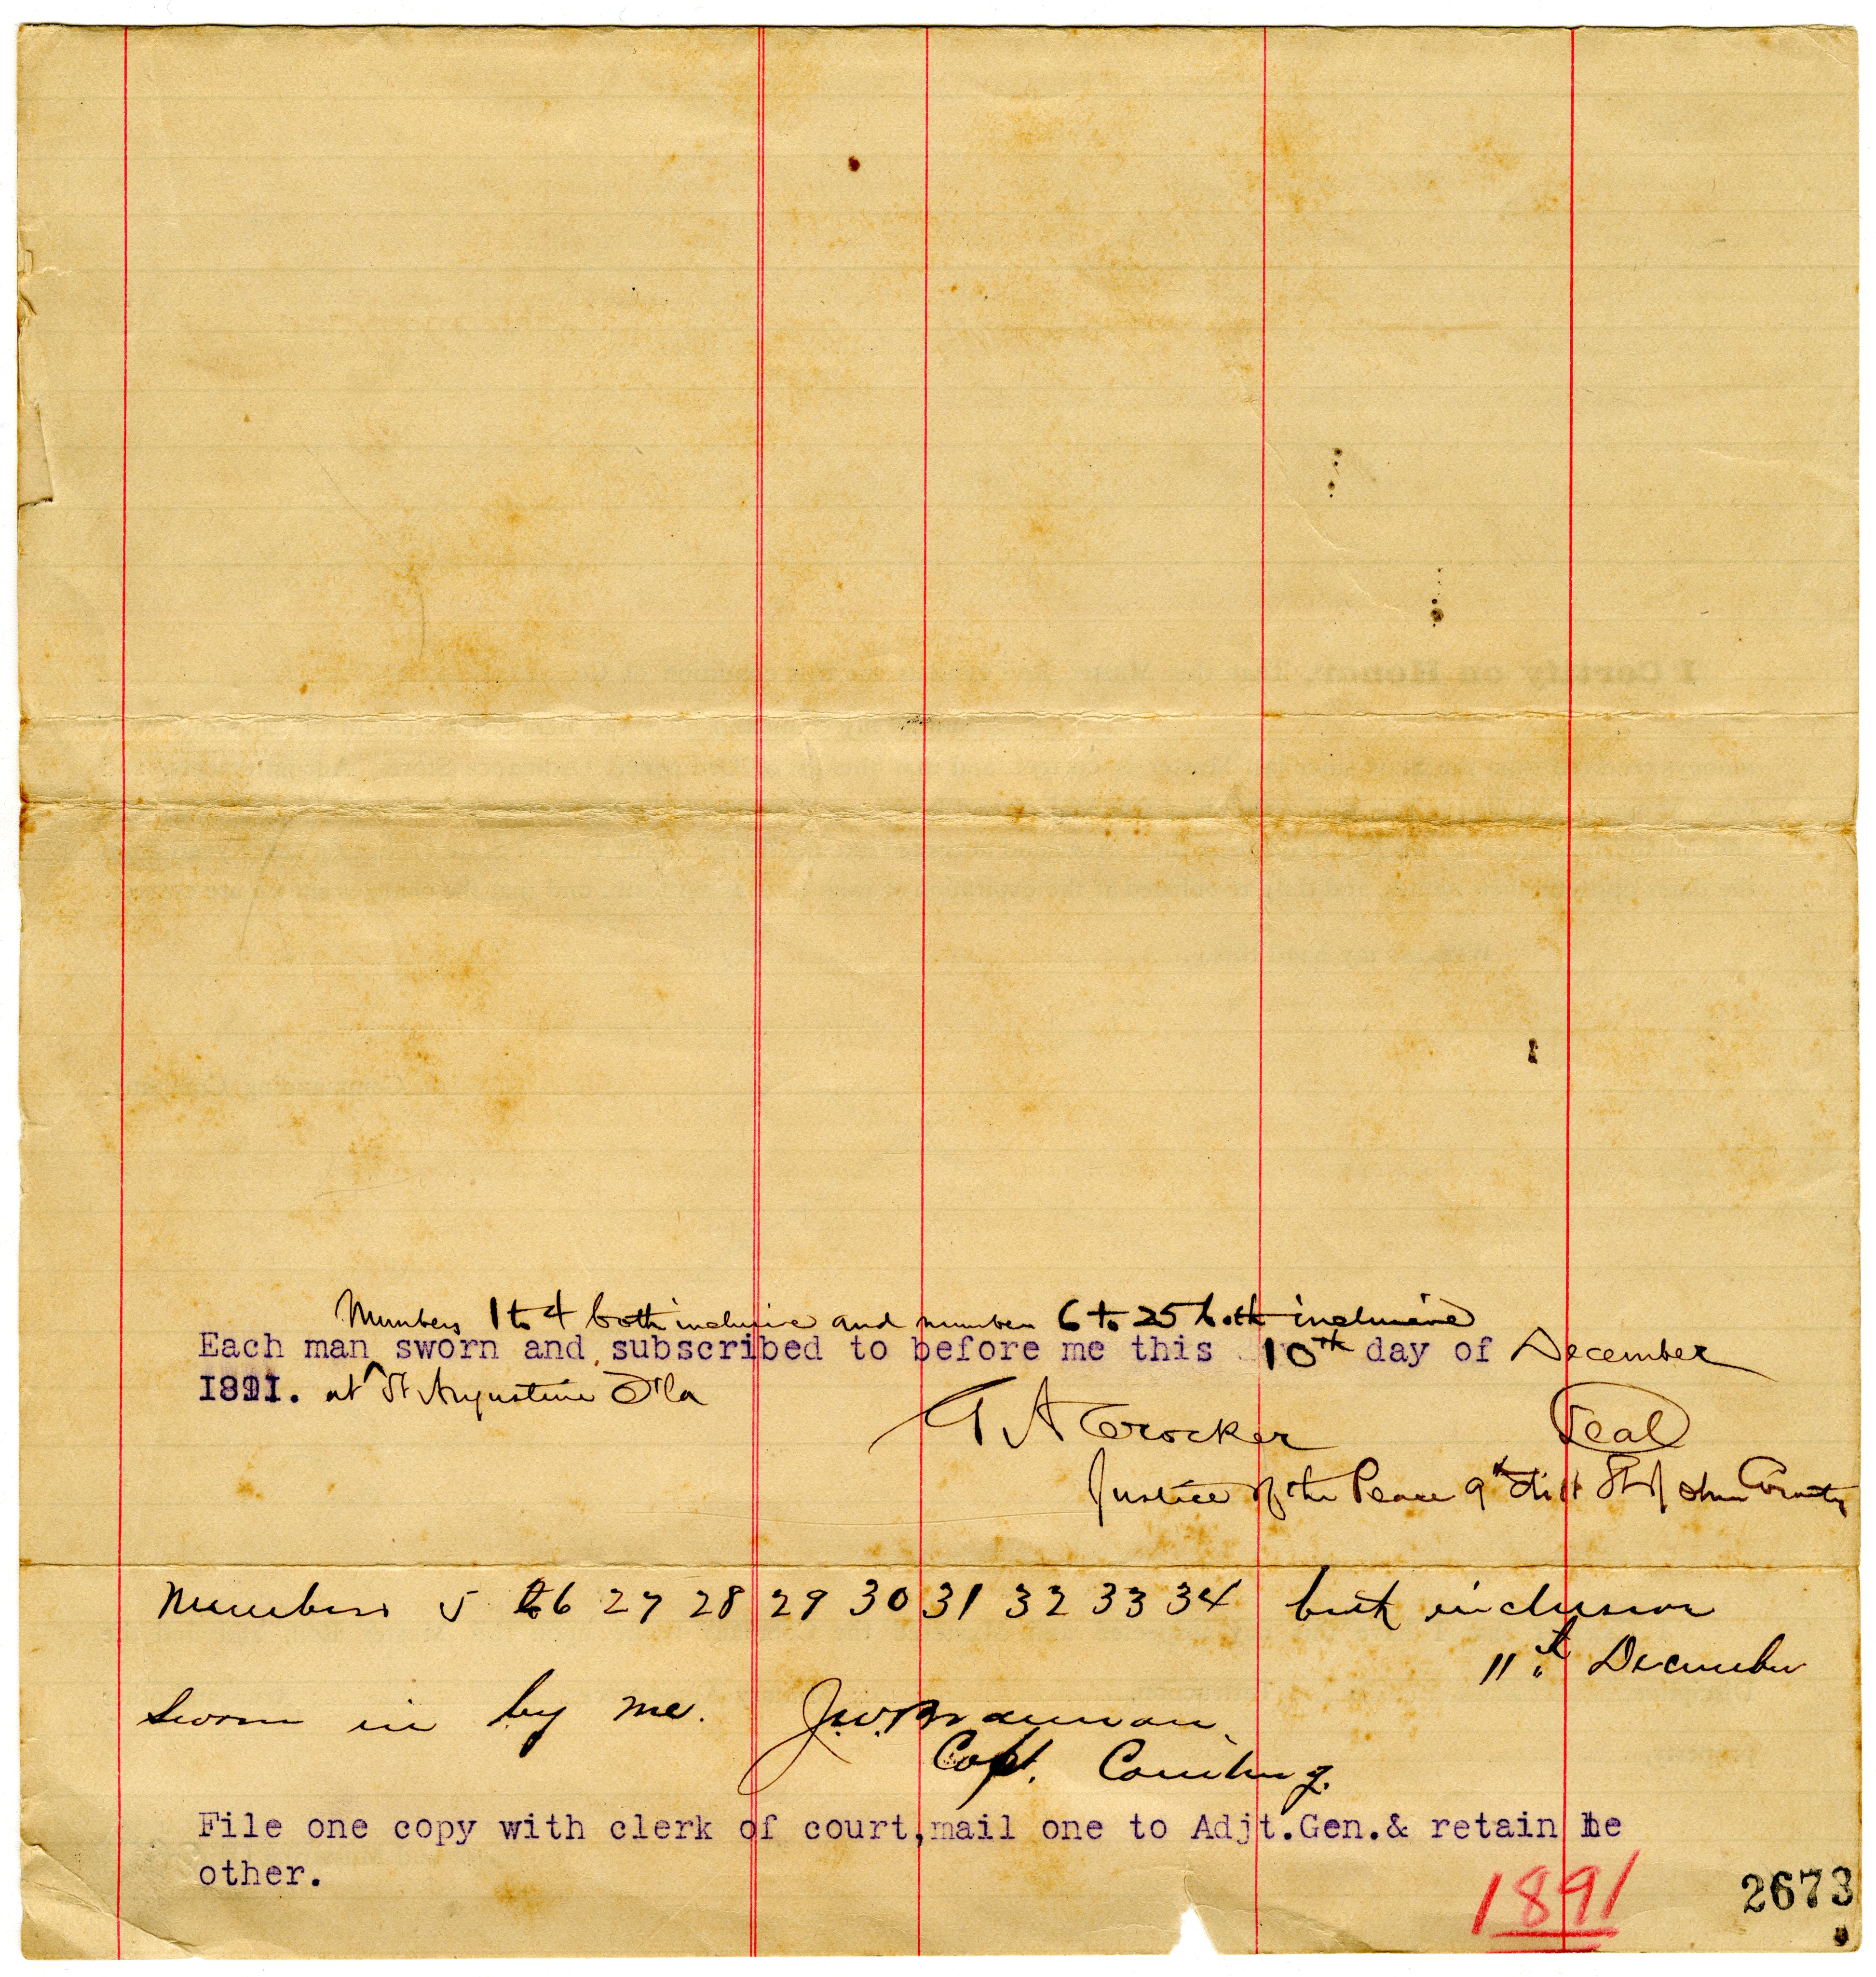 Numbers 1 to 4 both inclusive and number 6 to 25 both inclusive
Each man sworn and subscribed to before me this 10th day of December
1891. at St Augustine Fla
G A Crocker Seal
Justice of the Peace 9th Dist St Johns County
Numbers 5 26 27 28 29 30 31 32 33 34 both inclusive
11th December
Sworn in by me. J.W. Brannan.
Capt. Comdng.
File one copy with clerk of court, mail one to Adjt.Gen.& retain he
other.
1891
2673
I Certify on Honor,